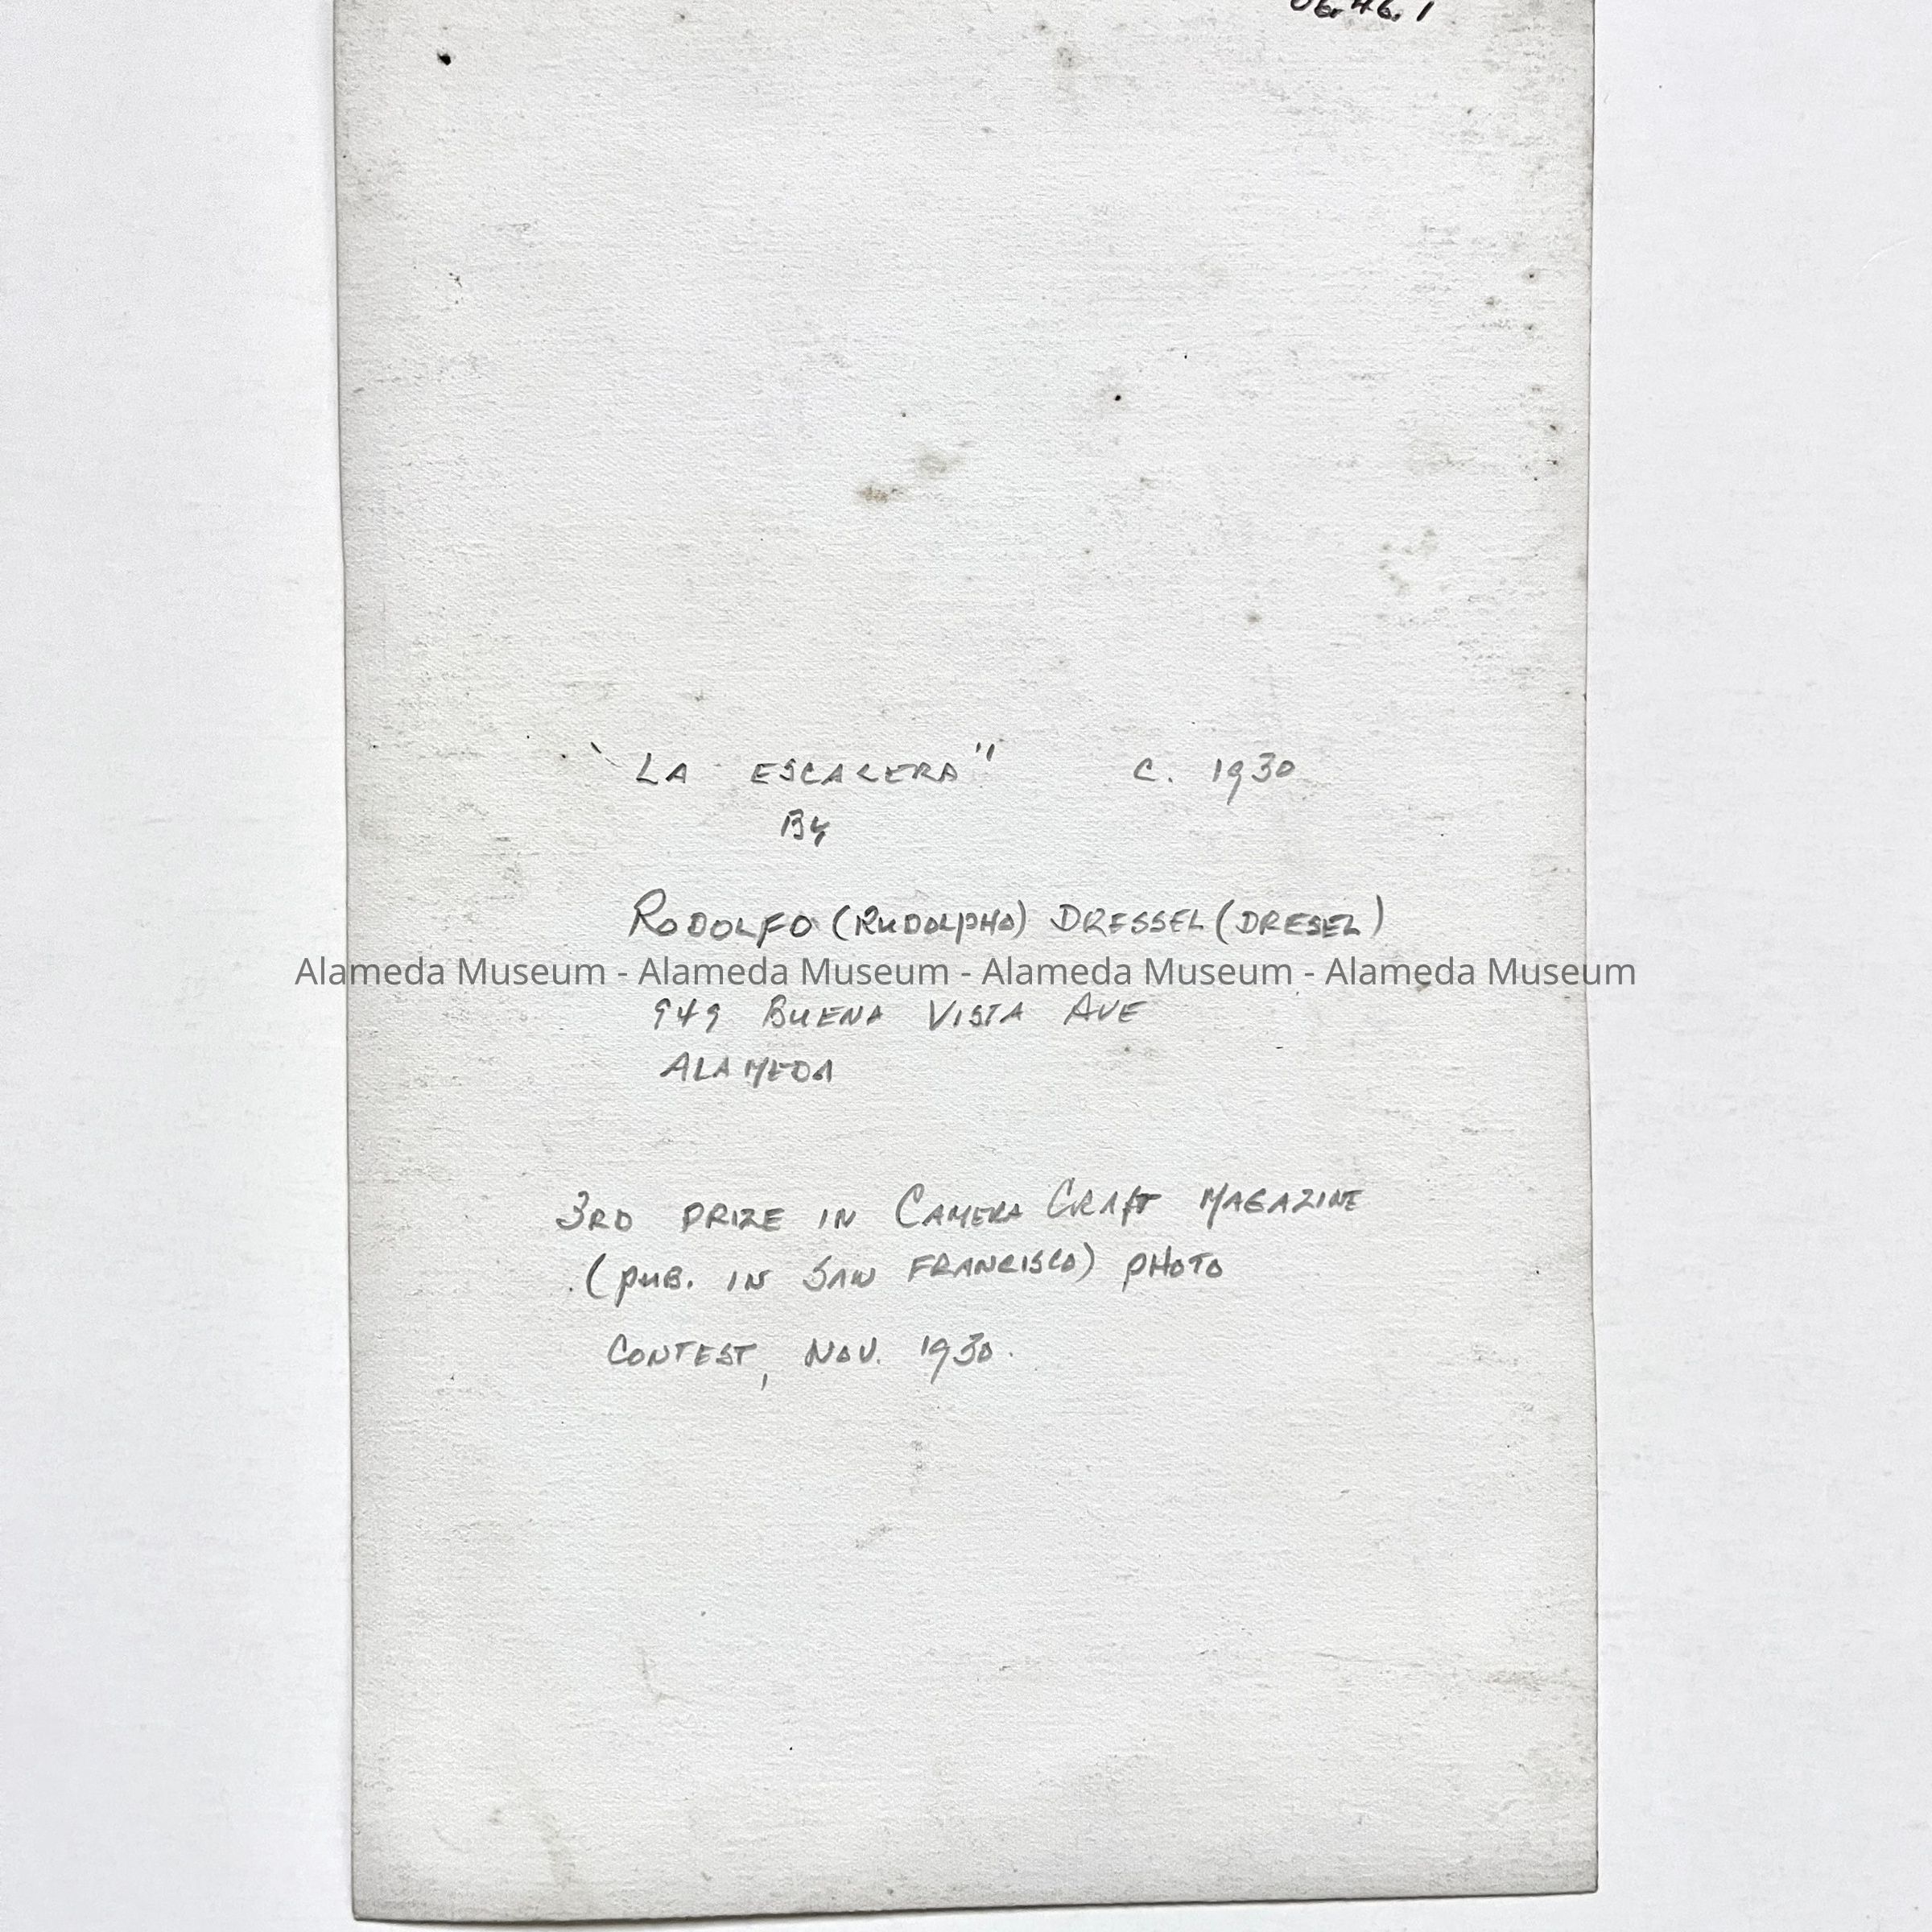 06.46.1
"LA ESCALERA" C. 1930
By
RODOLFO (RUDOLPHO) DRESSEL (DRESEL)
Alameda Museum - Alameda Museum - Alameda Museum - Alameda Museum
949 BUENA VISTA AVE
ALAMEDA
3RD PRIZE IN CAMERA CRAFT MAGAZINE
(PUB. IN SAN FRANCISCO) PHOTO
CONTEST, NOV. 1930.